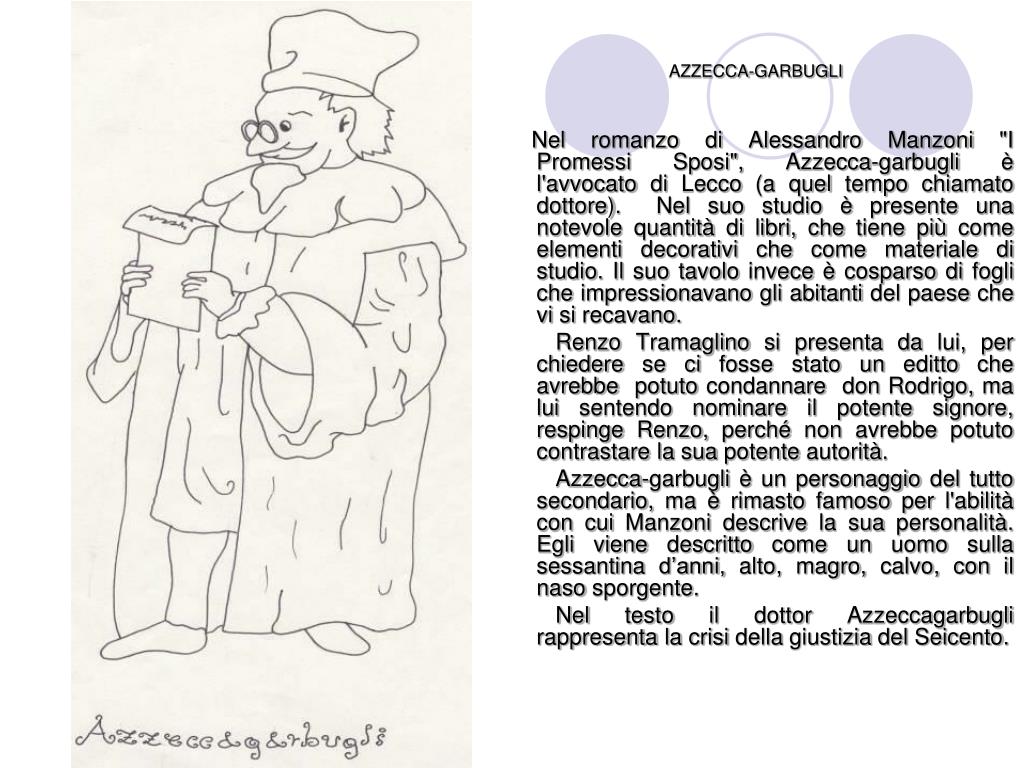 AZZECCA-GARBUGLI
Nel romanzo di Alessandro Manzoni "I
Promessi Sposi", Azzecca-garbugli è
l'avvocato di Lecco (a quel tempo chiamato
dottore). Nel suo studio è presente una
notevole quantità di libri, che tiene più come
elementi decorativi che come materiale di
studio. Il suo tavolo invece è cosparso di fogli
che impressionavano gli abitanti del paese che
vi si recavano.
Renzo Tramaglino si presenta da lui, per
chiedere se ci fosse stato un editto che
avrebbe potuto condannare don Rodrigo, ma
lui sentendo nominare il potente signore,
respinge Renzo, perché non avrebbe potuto
contrastare la sua potente autorità.
Azzecca-garbugli è un personaggio del tutto
secondario, ma è rimasto famoso per l'abilità
con cui Manzoni descrive la sua personalità.
Egli viene descritto come un uomo sulla
sessantina d’anni, alto, magro, calvo, con il
naso sporgente.
Nel testo il dottor Azzeccagarbugli
rappresenta la crisi della giustizia del Seicento.
Azzeccagarbugli